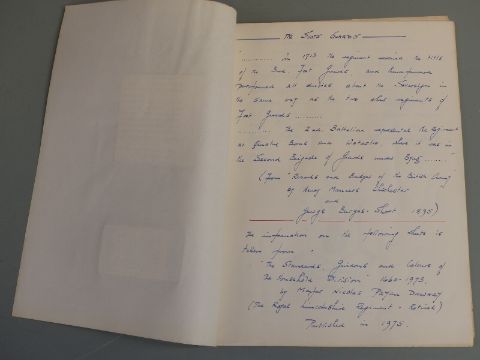 THE SCOTS GUARDS
"............ In 1713 the regiment received the title
of the 3rd. Foot Guards, and
performed all duties about the Sovereign in
the same way as the two other regiments of
Foot Guards ..........
.......... the 2nd. Battalion represented the Regiment
at Quatre Bras and Waterloo, where it was in
the Second Brigade of Guards under Byng ......."
(From "Records and Badges of the British Army"
by Henry Manners Chichester
and
George Burges-Short 1895)
The information on the following sheets is
taken from:-
"The Standards, Guidons and Colours of
the Household Division" 1660-1973.
by Major Nicholas Payan Dawnay
(The Royal Lincolnshire Regiment - Retired)
Published in 1975.